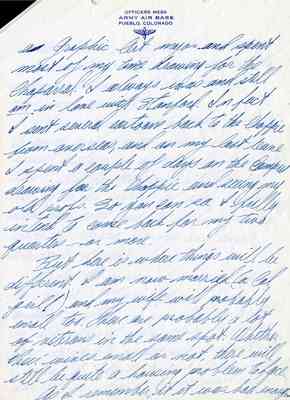 OFFICERS MESS
ARMY AIR BASE
PUEBLO, COLORADO
a Graphic Art major and spent
most of my time drawing for the
Chaparral. I always was and still
am in love with Stanford. In fact
I sent several cartoons back to the Chappie
from overseas, and on my last leave
I spent a couple of days on the Campus
drawing for the Chappie and seeing my
old profs. So you can see I fully
intend to come back for my two
quarters - or more.
But here is where things will be
different. I am now married (a Cal
girl!) and my wife will probably
enroll too. There are probably a lot
of veterans in the same spot. Whether
these wives enroll or not there will
still be quite a housing problem to face.
As I remember it it was bad enough